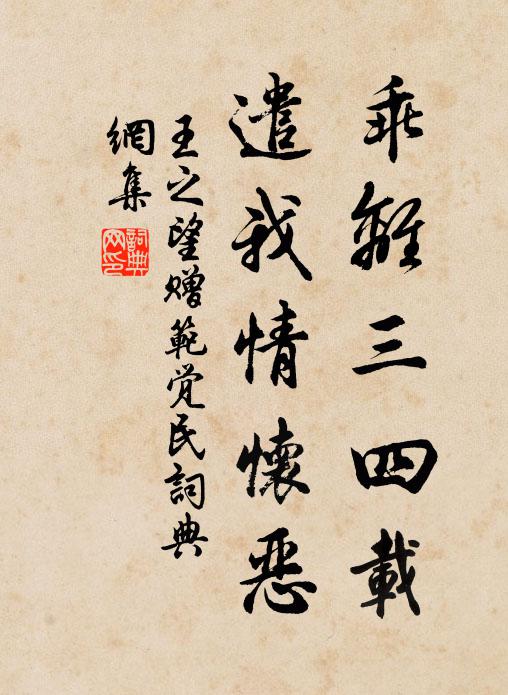 乖離三四載
遣我情懷惡
王之望贈範覚民詞典
網集
詞典
网印